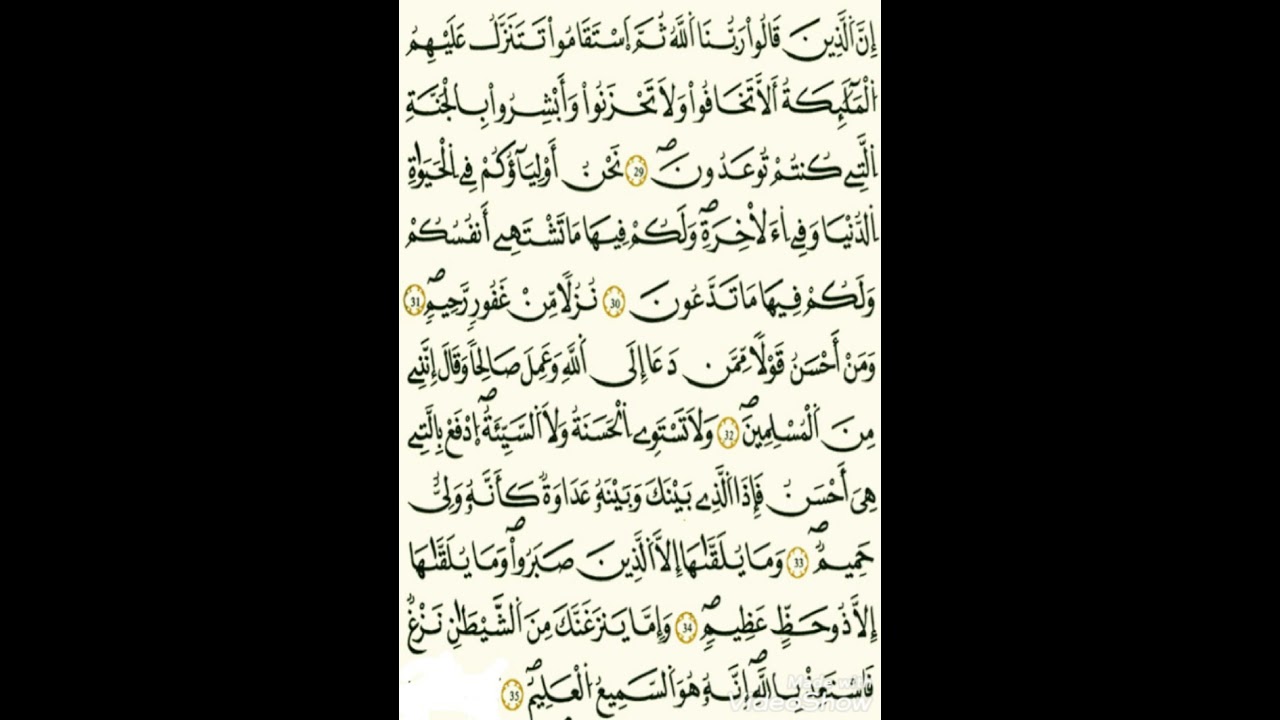 إِنَّ اَ۬لذِينَ قَالُواْ رَبُّنَا اَ۬للَّهُ ثُمَّ اَ۪سْتَقَٰمُواْ تَتَنَزَّلُ عَلَيْهِمُ
اُ۬لْمَلَٰٓئِكَةُ أَلَّا تَخَافُواْ وَلَا تَحْزَنُواْ وَأَبْشِرُواْ بِالْجَنَّةِ
اِ۬لتِے كُنتُمْ تُوعَدُونَۖ 29 نَحْنُ أَوْلِيَآؤُكُمْ فِے اِ۬لْحَيَوٰةِ
اِ۬لدُّنْيَا وَفِے اِ۬ءَلَاخِرَةِۖ وَلَكُمْ فِيهَا مَا تَشْتَهِےٓ أَنفُسُكُمْ
وَلَكُمْ فِيهَا مَا تَدَّعُونَ 30 نُزُلٗا مِّنْ غَفُورٖ رَّحِيمٖۖ 31
وَمَنْ أَحْسَنُ قَوْلٗا مِّمَّن دَعَا إِلَى اَ۬للَّهِ وَعَمِلَ صَالِحاٗ وَقَالَ إِنَّنِے
مِنَ اَ۬لْمُسْلِمِينَۖ 32 وَلَا تَسْتَوِے اِ۬لْحَسَنَةُ وَلَا اَ۬لسَّيِّئَةُۖ اُ۪دْفَعْ بِالتِے
هِيَ أَحْسَنُ فَإِذَا اَ۬لذِے بَيْنَكَ وَبَيْنَهُۥ عَدَٰوَةٞ كَأَنَّهُۥ وَلِيٌّ
حَمِيمٞۖ 33 وَمَا يُلَقَّىٰهَا إِلَّا اَ۬لذِينَ صَبَرُواْۖ وَمَا يُلَقَّىٰهَا
إِلَّا ذُو حَظٍّ عَظِيمٖۖ 34 وَإِمَّا يَنزَغَنَّكَ مِنَ اَ۬لشَّيْطَٰنِ نَزْغٞ
فَاسْتَعِذْ بِاللَّهِۖ إِنَّهُۥ هُوَ اَ۬لسَّمِيعُ اُ۬لْعَلِيمُۖ 35
Made with
VideoShow